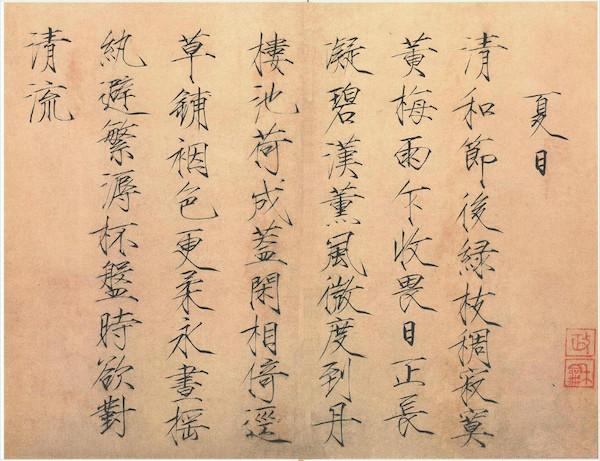 夏日
清和節後緑枝稠寂寞
黃梅雨乍收畏日正長
凝碧漢薰風微度到丹
樓池荷成蓋閑相倚逕
草鋪裀色更柔永晝搖
紈避繁溽杯盤時欲對
清流
政龢